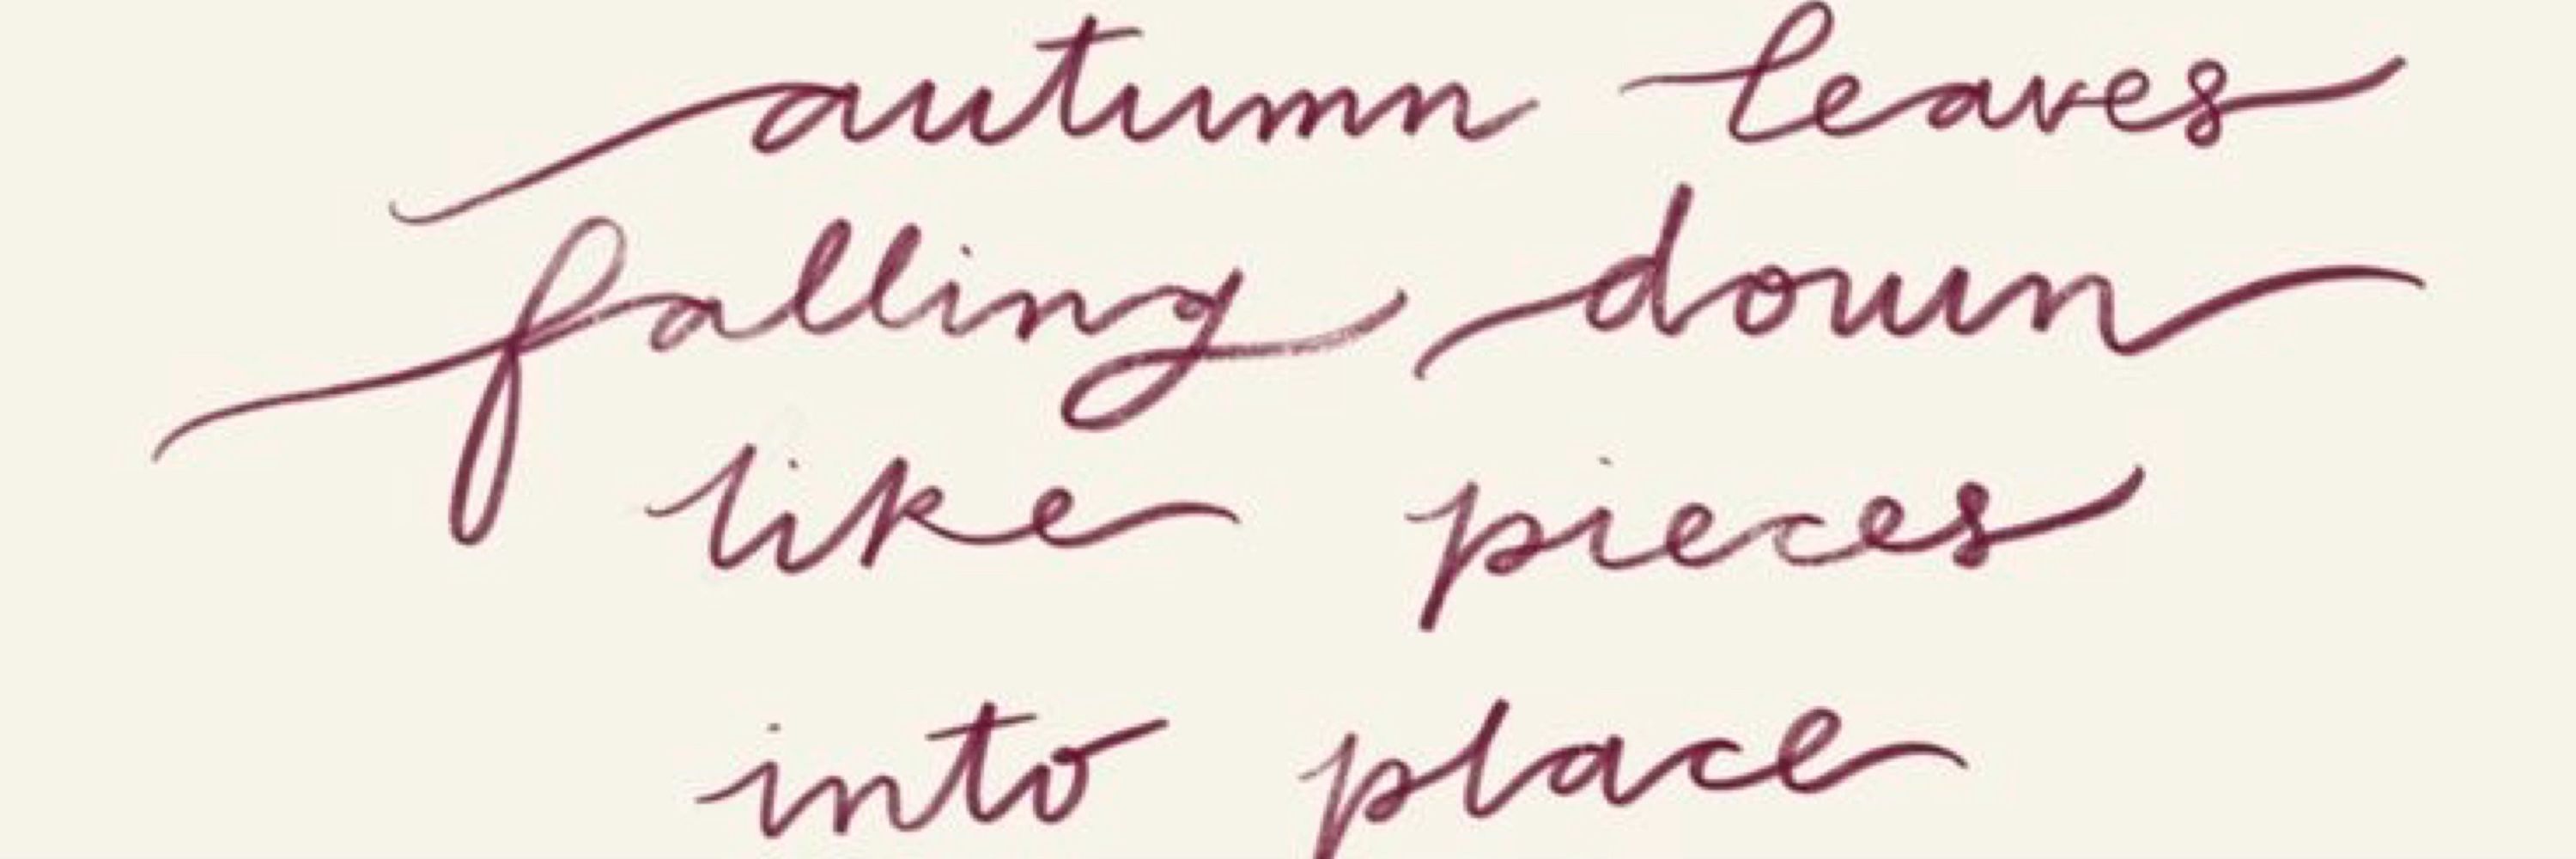 autumn leaves
falling down
like pieces
into place